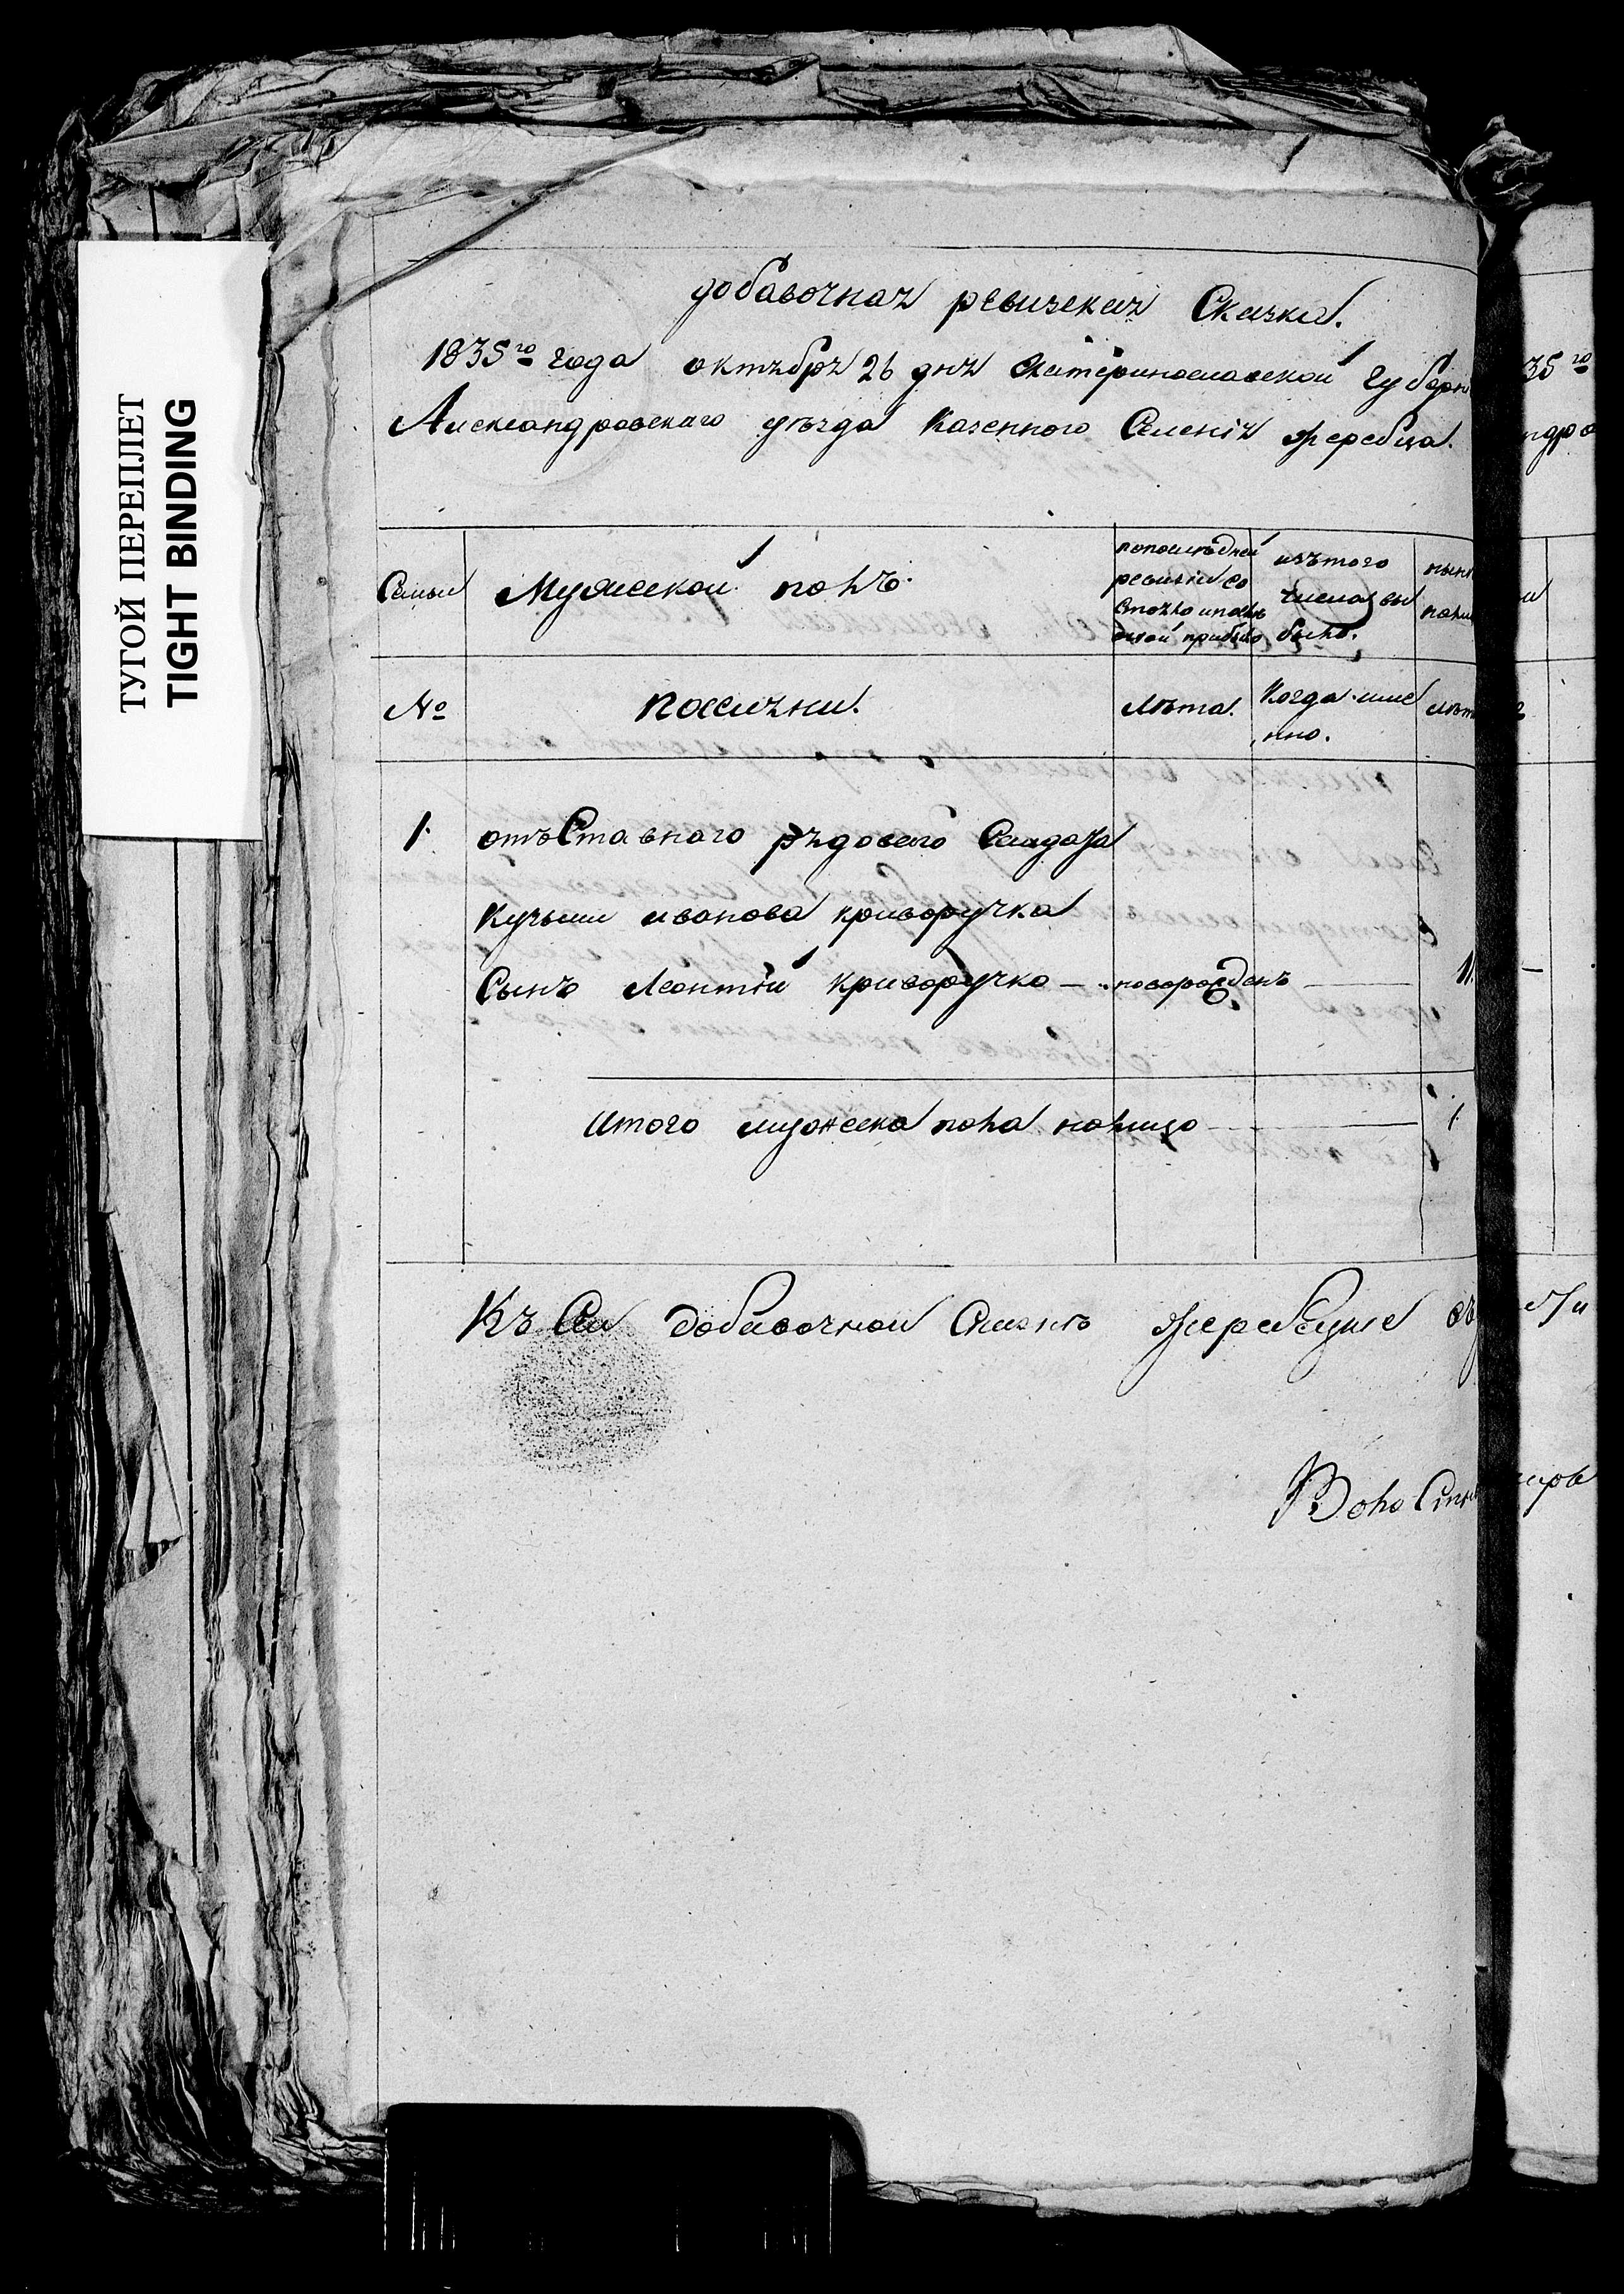 ТУГОЙ ПЕРЕПЛЕТ
TIGHT BINDING
добавочная ревизская Сказка.
1835го года октября 26 дня Екатеринославской Губерн
Александровскаго уѣзда казенного Селенія Жеребца.
Семьи
Мужеской полъ.
попослѣдней
ревизіи со
стояло и послѣ
оной прибыло
изътого
числа вы
было.
нын
нали
№
поселяни.
Лѣта.
Когда име
нно.
Лѣт
1.
отъСтавного рядового Солдата
Кузьми иванова криворучка
Сынъ Леонтій криворучко — новорожденъ — 11.
Итого мужеска пола налицо — 1.
Къ Сей добавочной Жеребецке
35го
ндро